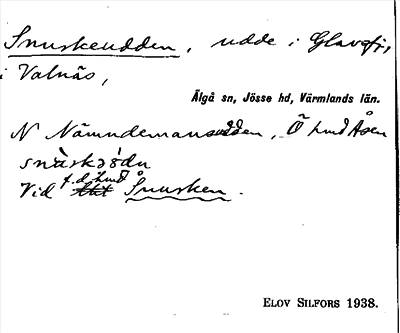 Snuskeudden, udde i Glavsfj,
i Valnäs,
Älgå sn, Jösse hd, Värmlands län.
N Nämndemansudden, Ö hmd Åsen
snàrksö̀dn
Vid f.d. hmd Snusken.
ELOV SILFORS 1938.